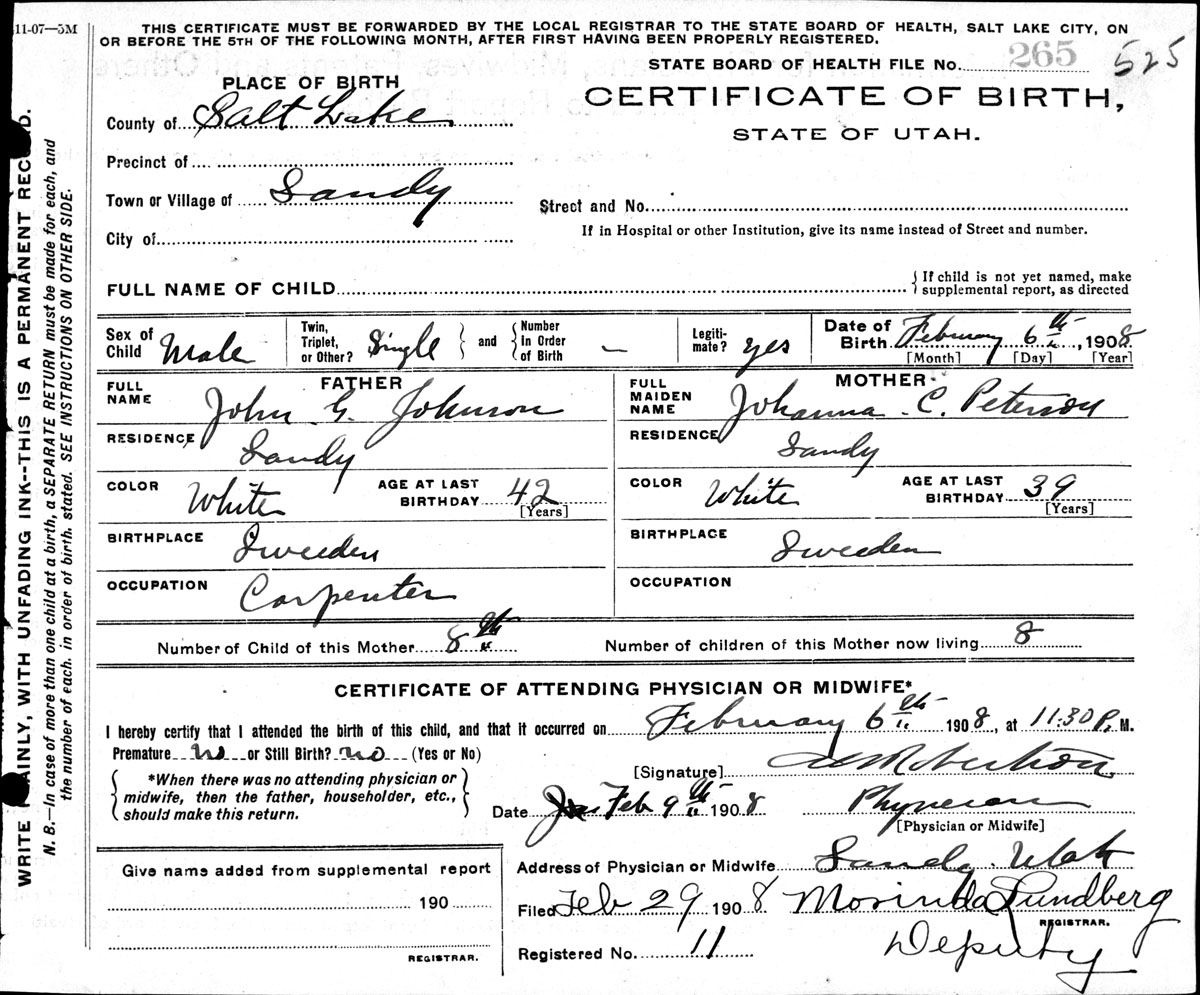 11-07—5M
THIS CERTIFICATE MUST BE FORWARDED BY THE LOCAL REGISTRAR TO THE STATE BOARD OF HEALTH, SALT LAKE CITY, ON
OR BEFORE THE 5TH OF THE FOLLOWING MONTH, AFTER FIRST HAVING BEEN PROPERLY REGISTERED.
STATE BOARD OF HEALTH FILE No. 265 525
PLACE OF BIRTH
CERTIFICATE OF BIRTH,
STATE OF UTAH.
County of Salt Lake
Precinct of
Town or Village of Sandy
Street and No.
City of
If in Hospital or other Institution, give its name instead of Street and number.
FULL NAME OF CHILD
{ If child is not yet named, make
supplemental report, as directed
Sex of Child Male
Twin, Triplet, or Other? Single } and { Number In Order of Birth —
Legiti-mate? yes
Date of Birth February 6th, 1908
[Month] [Day] [Year]
FATHER
FULL NAME John G. Johnson
RESIDENCE Sandy
COLOR White
AGE AT LAST BIRTHDAY 42
[Years]
BIRTHPLACE Sweeden
OCCUPATION Carpenter
MOTHER
FULL MAIDEN NAME Johanna C. Peterson
RESIDENCE Sandy
COLOR White
AGE AT LAST BIRTHDAY 39
[Years]
BIRTHPLACE Sweeden
OCCUPATION
Number of Child of this Mother 8th
Number of children of this Mother now living 8
CERTIFICATE OF ATTENDING PHYSICIAN OR MIDWIFE*
I hereby certify that I attended the birth of this child, and that it occurred on February 6th 1908, at 11:30 P. M.
Premature no or Still Birth? no (Yes or No)
{ *When there was no attending physician or
midwife, then the father, householder, etc.,
should make this return. }
[Signature] Robertson
Date Feb 9th 1908
Physician
[Physician or Midwife]
Address of Physician or Midwife Sandy Utah
Give name added from supplemental report
190
REGISTRAR.
Filed Feb 29 1908 Morinda Lundberg
REGISTRAR.
Registered No. 11
Deputy
WRITE PLAINLY, WITH UNFADING INK--THIS IS A PERMANENT RECORD.
N. B.—In case of more than one child at a birth, a SEPARATE RETURN must be made for each, and
the number of each, in order of birth, stated. SEE INSTRUCTIONS ON OTHER SIDE.